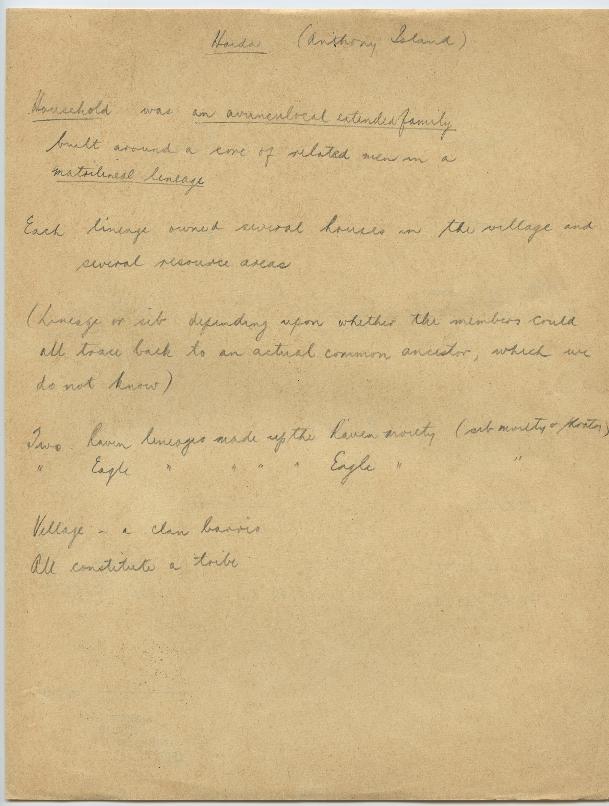 Haida (Anthony Island)
Household was an avunculocal extended family
built around a core of related men in a
matrilineal lineage
Each lineage owned several houses in the village and
several resource areas
(Lineage or sib depending upon whether the members could
all trace back to an actual common ancestor, which we
do not know)
Two Raven lineages made up the Raven moiety (sib moiety or
" Eagle " " " " Eagle " "
Village - a clan barrio
All constitute a tribe